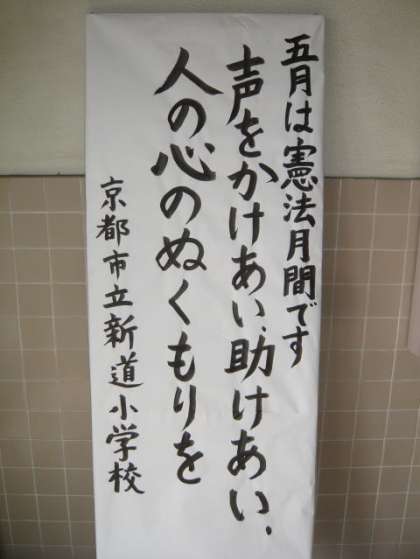 五月は憲法月間です
声をかけあい、助けあい、
人の心のぬくもりを
京都市立新道小学校